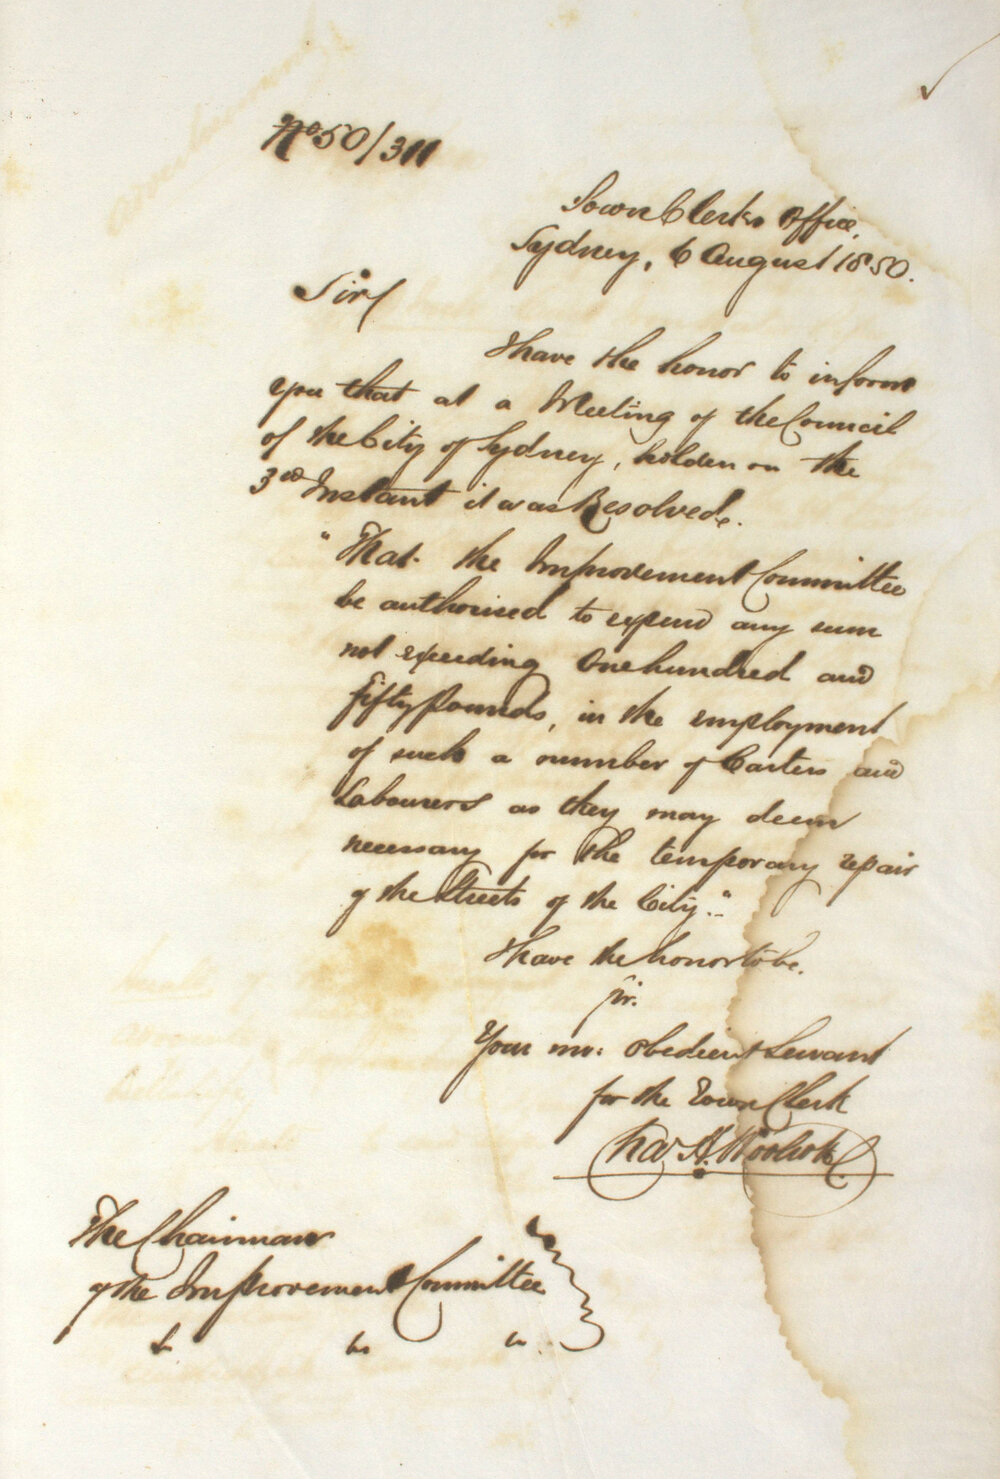 No 50/311
Town Clerks Office,
Sydney, 6 August 1850.
Sir/
I have the honor to inform
you that at a Meeting of the Council
of the City of Sydney, holden on the
3rd Instant it was Resolved.
"That the Improvement Committee
be authorised to expend any sum
not exceeding One hundred and
fifty pounds, in the employment
of such a number of Carters and
Labourers as they may deem
necessary for the temporary repair
of the Streets of the City."
I have the honor to be.
Sir.
Your mo: obedient Servant
for the Town Clerk
Chas H. Woolcott
The Chairman
of the Improvement Committee